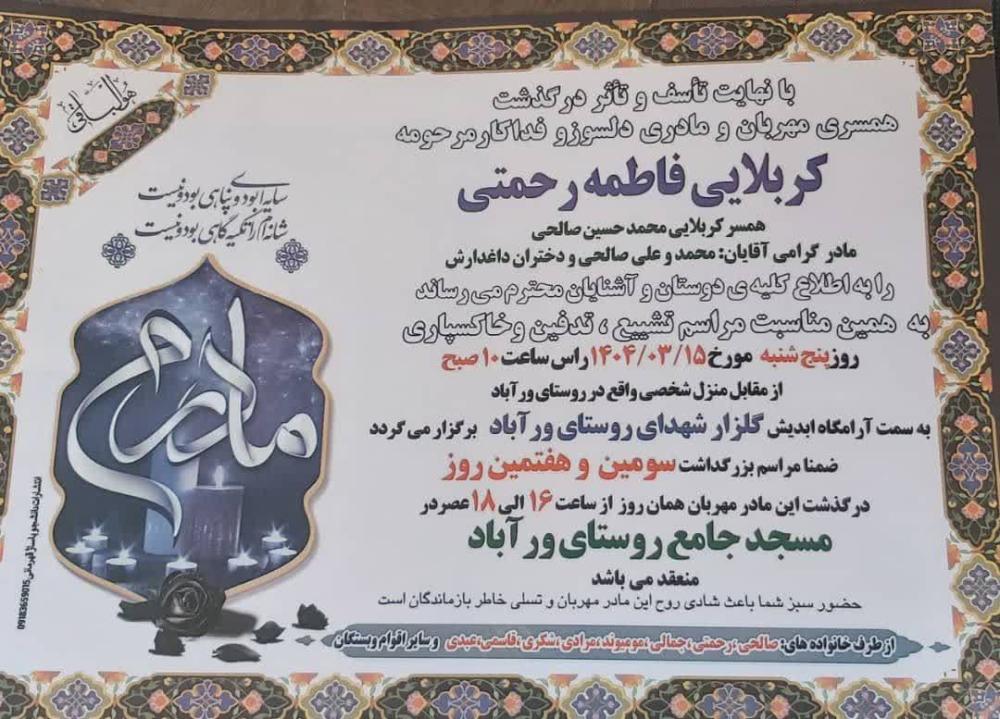 هو الباقی
با نهایت تأسف و تأثر درگذشت
همسری مهربان و مادری دلسوز و فداکار مرحومه
کربلایی فاطمه رحمتی
همسر کربلایی محمد حسین صالحی
مادر گرامی آقایان: محمد و علی صالحی و دختران داغدارش
را به اطلاع کلیه ی دوستان و آشنایان محترم می رساند
به همین مناسبت مراسم تشییع ، تدفین و خاکسپاری
روز پنج شنبه مورخ ۱۴۰۴/۰۳/۱۵ راس ساعت ۱۰ صبح
از مقابل منزل شخصی واقع در روستای ورآباد
به سمت آرامگاه ابدیش گلزار شهدای روستای ورآباد برگزار می گردد
ضمنا مراسم بزرگداشت سومین و هفتمین روز
درگذشت این مادر مهربان همان روز از ساعت ۱۶ الی ۱۸ عصر در
مسجد جامع روستای ورآباد
منعقد می باشد
حضور سبز شما باعث شادی روح این مادر مهربان و تسلی خاطر بازماندگان است
از طرف خانواده های: صالحی ،رحمتی، جمالی ،مومیوند، مرادی ، شکری ، قاسمی، عبدی و سایر اقوام و بستگان
سایه ای بود و پناهی بود و نیست
شانه ام را تکیه گاهی بود و نیست
مادرم
انتشارات دانشجو پاساژ قهرمانی 09183659015